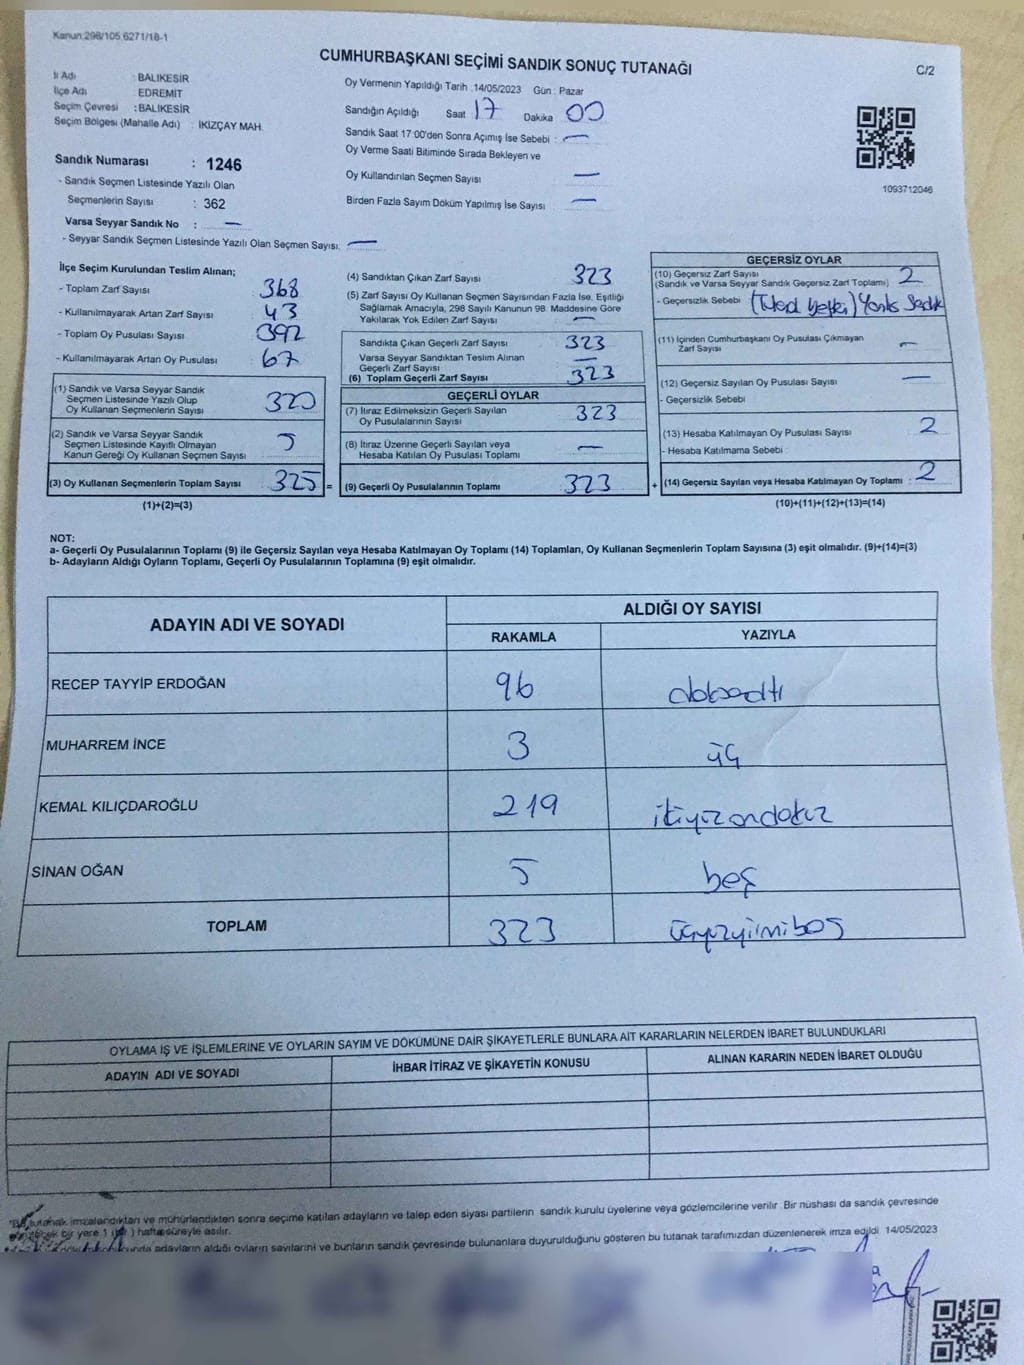 Kanun:298/105,6271/18-1
CUMHURBAŞKANI SEÇİMİ SANDIK SONUÇ TUTANAĞI
C/2
İl Adı : BALIKESİR
İlçe Adı : EDREMİT
Seçim Çevresi : BALIKESİR
Seçim Bölgesi (Mahalle Adı) : İKİZÇAY MAH.
Oy Vermenin Yapıldığı Tarih : 14/05/2023 Gün : Pazar
Sandığın Açıldığı Saat 17 Dakika 00
Sandık Saat 17:00'den Sonra Açımış İse Sebebi : —
Oy Verme Saati Bitiminde Sırada Bekleyen ve
Oy Kullandırılan Seçmen Sayısı —
Birden Fazla Sayım Döküm Yapılmış İse Sayısı —
1093712046
Sandık Numarası : 1246
- Sandık Seçmen Listesinde Yazılı Olan
Seçmenlerin Sayısı : 362
Varsa Seyyar Sandık No : —
- Seyyar Sandık Seçmen Listesinde Yazılı Olan Seçmen Sayısı: —
İlçe Seçim Kurulundan Teslim Alınan;
- Toplam Zarf Sayısı 368
- Kullanılmayarak Artan Zarf Sayısı 43
- Toplam Oy Pusulası Sayısı 392
- Kullanılmayarak Artan Oy Pusulası 67
(1) Sandık ve Varsa Seyyar Sandık
Seçmen Listesinde Yazılı Olup
Oy Kullanan Seçmenlerin Sayısı 320
(2) Sandık ve Varsa Seyyar Sandık
Seçmen Listesinde Kayıtlı Olmayan
Kanun Gereği Oy Kullanan Seçmen Sayısı 5
(3) Oy Kullanan Seçmenlerin Toplam Sayısı 325 =
(1)+(2)=(3)
(4) Sandıktan Çıkan Zarf Sayısı 323
(5) Zarf Sayısı Oy Kullanan Seçmen Sayısından Fazla İse, Eşitliği
Sağlamak Amacıyla, 298 Sayılı Kanunun 98. Maddesine Göre
Yakılarak Yok Edilen Zarf Sayısı —
Sandıkta Çıkan Geçerli Zarf Sayısı 323
Varsa Seyyar Sandıktan Teslim Alınan
Geçerli Zarf Sayısı —
(6) Toplam Geçerli Zarf Sayısı 323
GEÇERLİ OYLAR
(7) İtiraz Edilmeksizin Geçerli Sayılan
Oy Pusulalarının Sayısı 323
(8) İtiraz Üzerine Geçerli Sayılan veya
Hesaba Katılan Oy Pusulası Toplamı —
(9) Geçerli Oy Pusulalarının Toplamı 323 +
GEÇERSİZ OYLAR
(10) Geçersiz Zarf Sayısı
(Sandık ve Varsa Seyyar Sandık Geçersiz Zarf Toplamı) 2
- Geçersizlik Sebebi
(11) İçinden Cumhurbaşkanı Oy Pusulası Çıkmayan
Zarf Sayısı —
(12) Geçersiz Sayılan Oy Pusulası Sayısı —
- Geçersizlik Sebebi
(13) Hesaba Katılmayan Oy Pusulası Sayısı 2
- Hesaba Katılmama Sebebi
(14) Geçersiz Sayılan veya Hesaba Katılmayan Oy Toplamı : 2
(10)+(11)+(12)+(13)=(14)
NOT:
a- Geçerli Oy Pusulalarının Toplamı (9) ile Geçersiz Sayılan veya Hesaba Katılmayan Oy Toplamı (14) Toplamları, Oy Kullanan Seçmenlerin Toplam Sayısına (3) eşit olmalıdır. (9)+(14)=(3)
b- Adayların Aldığı Oyların Toplamı, Geçerli Oy Pusulalarının Toplamına (9) eşit olmalıdır.
ADAYIN ADI VE SOYADI
ALDIĞI OY SAYISI
RAKAMLA YAZIYLA
RECEP TAYYİP ERDOĞAN 96
MUHARREM İNCE 3 üç
KEMAL KILIÇDAROĞLU 219 ikiyüzondokuz
SİNAN OĞAN 5 beş
TOPLAM 323
OYLAMA İŞ VE İŞLEMLERİNE VE OYLARIN SAYIM VE DÖKÜMÜNE DAİR ŞİKAYETLERLE BUNLARA AİT KARARLARIN NELERDEN İBARET BULUNDUKLARI
ADAYIN ADI VE SOYADI İHBAR İTİRAZ VE ŞİKAYETİN KONUSU ALINAN KARARIN NEDEN İBARET OLDUĞU
tutanak imzalandıktan ve mühürlendikten sonra seçime katılan adayların ve talep eden siyasi partilerin sandık kurulu üyelerine veya gözlemcilerine verilir. Bir nüshası da sandık çevresinde
bir yere 1 haftasüreyle asılır.
adayların aldığı oyların sayılarını ve bunların sandık çevresinde bulunanlara duyurulduğunu gösteren bu tutanak tarafımızdan düzenlenerek imza edildi. 14/05/2023